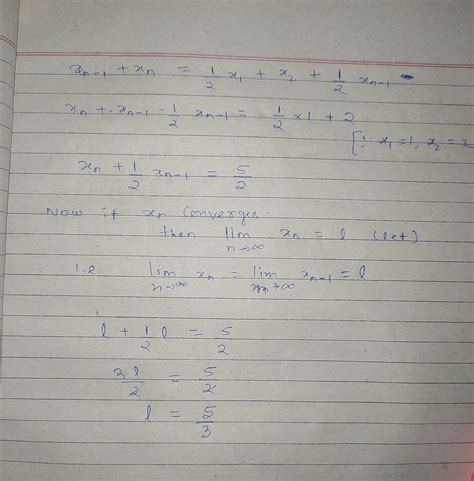 xₙ₋₁ + xₙ = 1/2 x₁ + x₂ + 1/2 xₙ₋₁
xₙ + xₙ₋₁ - 1/2 xₙ₋₁ = 1/2 × 1 + 2
[∵ x₁ = 1, x₂ = 2
xₙ + 1/2 xₙ₋₁ = 5/2
Now if xₙ Converges
then lim n→∞ xₙ = l (let)
i.e lim n→∞ xₙ = lim n→∞ xₙ₋₁ = l
l + 1/2 l = 5/2
3l/2 = 5/2
l = 5/3